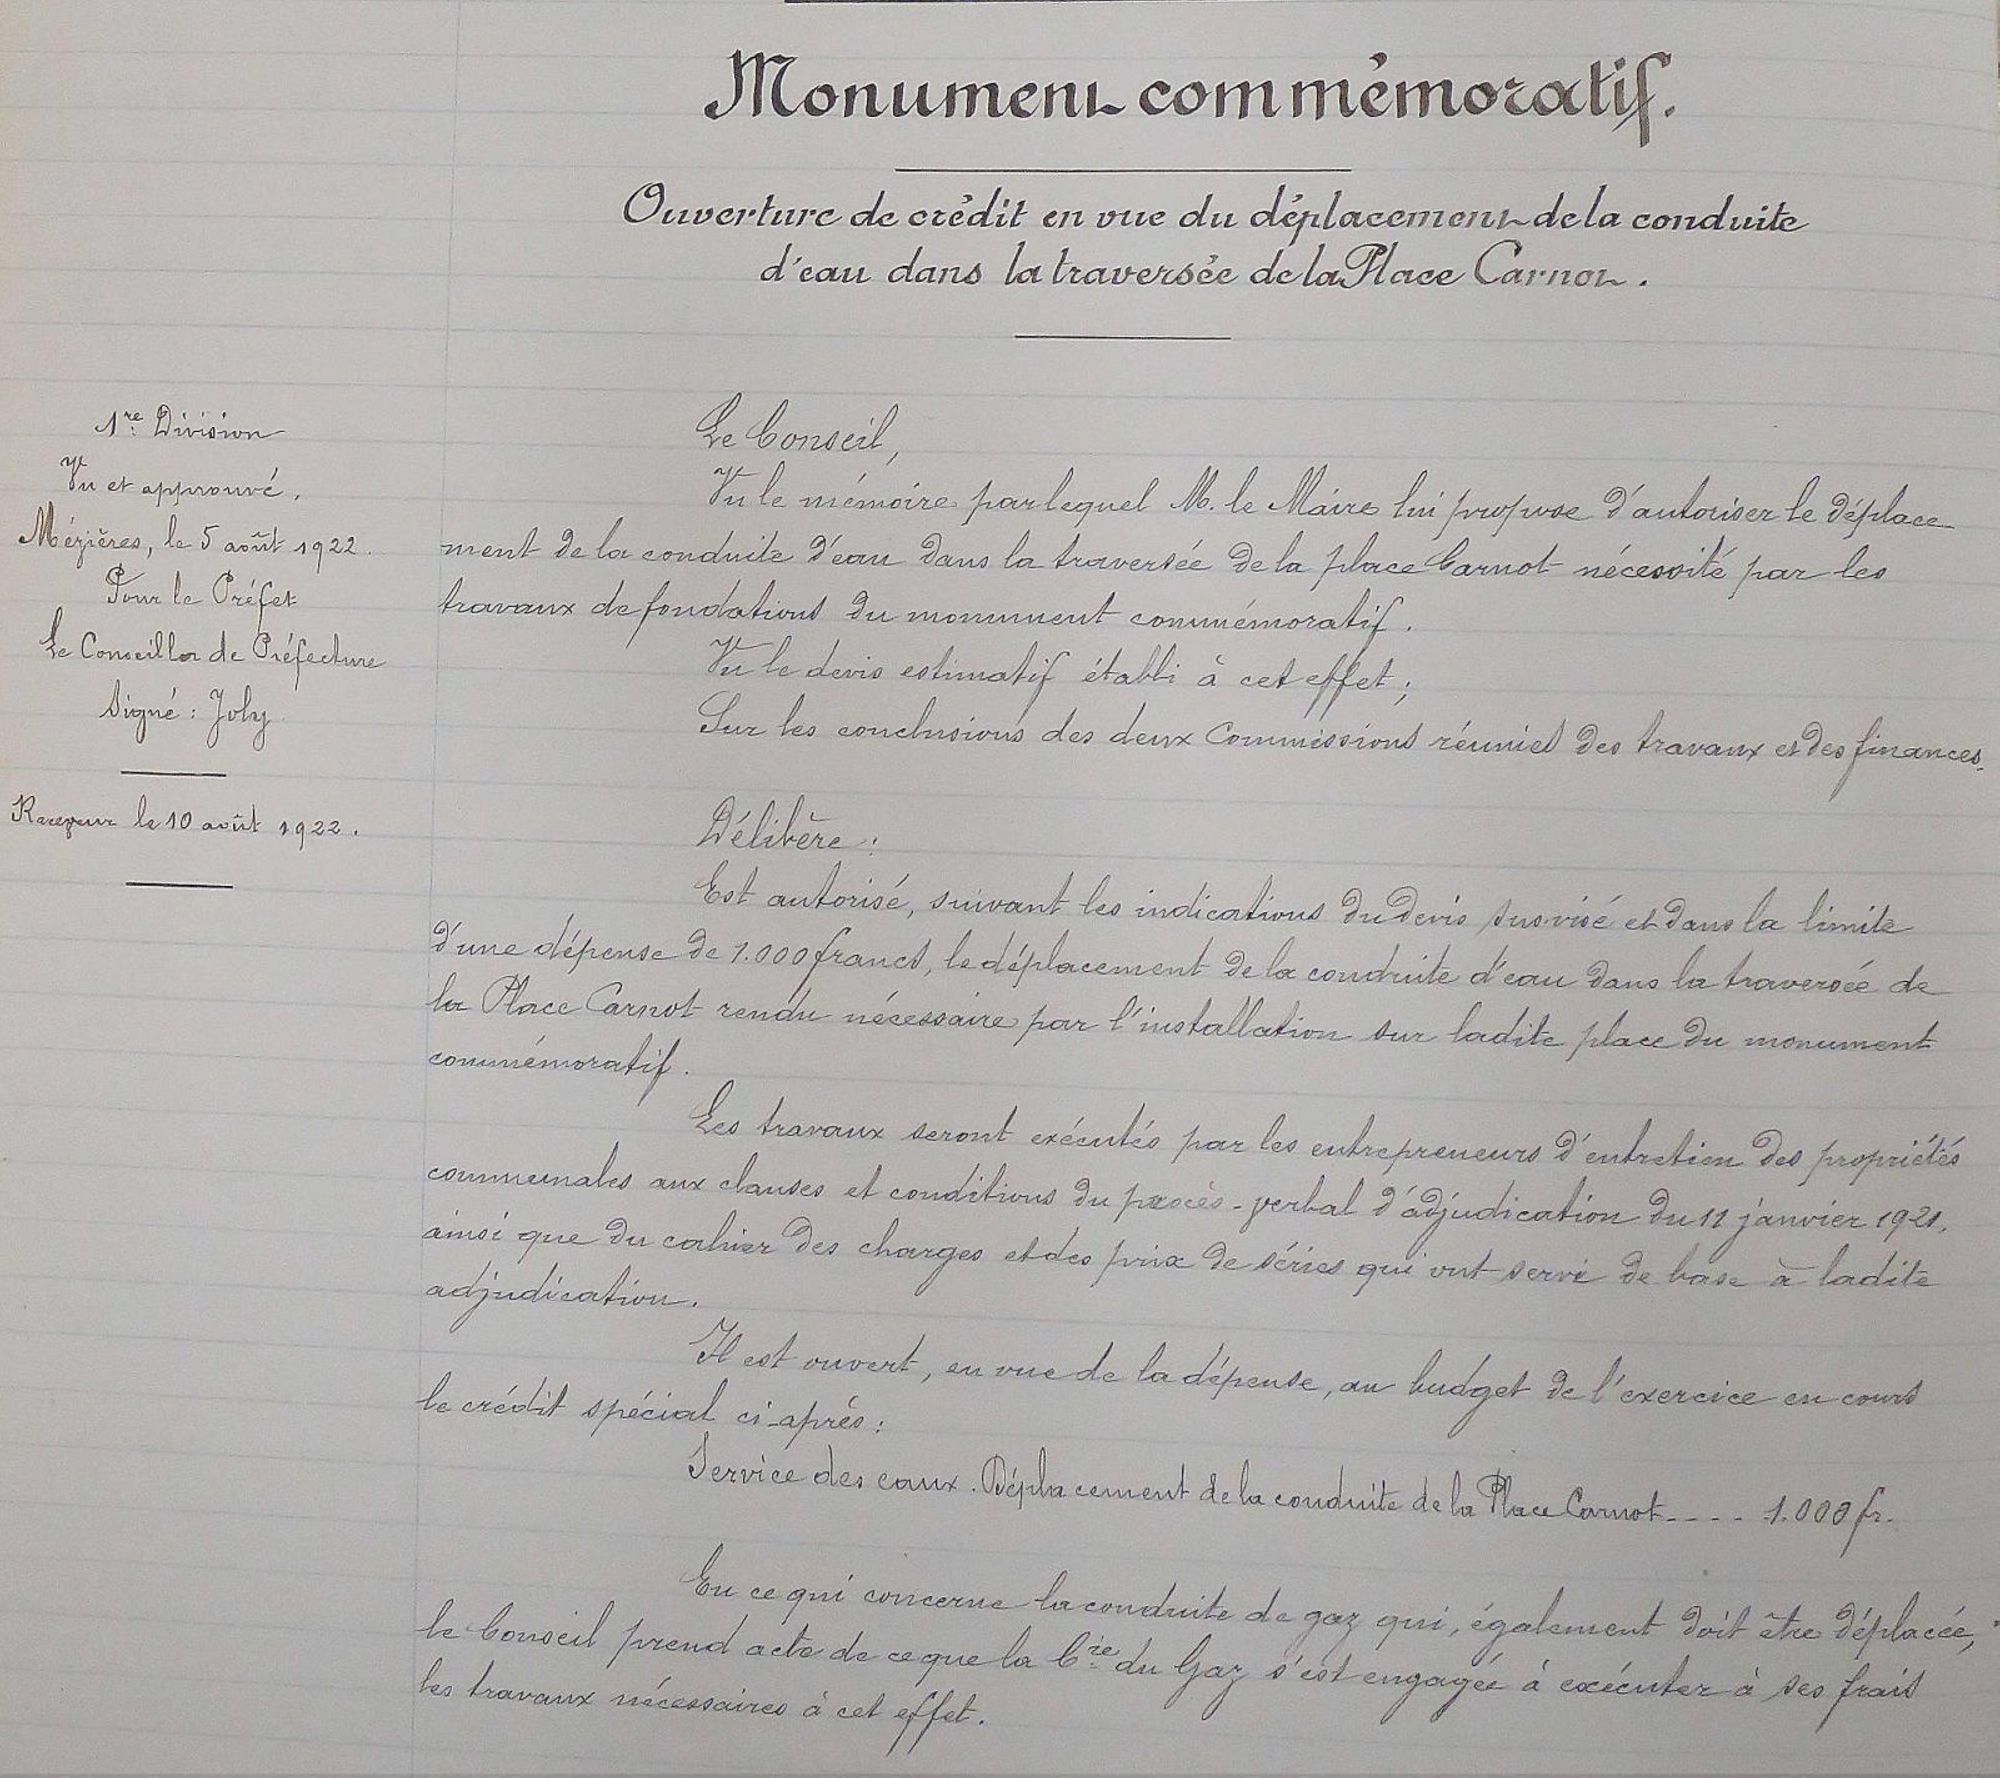 Monument commémoratif.
Ouverture de crédit en vue du déplacement de la conduite
d'eau dans la traversée de la Place Carnot.
1re Division
Vu et approuvé.
Mézières, le 5 août 1922.
Pour le Préfet
Le Conseiller de Préfecture
Signé : Joly
le 10 août 1922.
Le Conseil,
Vu le mémoire par lequel M. le Maire lui propose d'autoriser le déplace-
ment de la conduite d'eau dans la traversée de la place Carnot nécessité par les
travaux de fondations du monument commémoratif.
Vu le devis estimatif établi à cet effet ;
Sur les conclusions des deux Commissions réunies des travaux et des finances.
Délibère :
Est autorisé, suivant les indications du devis susvisé et dans la limite
d'une dépense de 1.000 francs, le déplacement de la conduite d'eau dans la traversée de
la Place Carnot rendu nécessaire par l'installation sur ladite place du monument
commémoratif.
Les travaux seront exécutés par les entrepreneurs d'entretien des propriétés
communales aux clauses et conditions du procès-verbal d'adjudication du 11 janvier 1921,
ainsi que du cahier des charges et des prix de séries qui ont servi de base à ladite
adjudication.
Il est ouvert, en vue de la dépense, au budget de l'exercice en cours
le crédit spécial ci-après :
Service des eaux. Déplacement de la conduite de la Place Carnot ---- 1.000 fr.
En ce qui concerne la conduite de gaz qui, également doit être déplacée,
le Conseil prend acte de ce que la Cie du Gaz s'est engagée à exécuter à ses frais
les travaux nécessaires à cet effet.